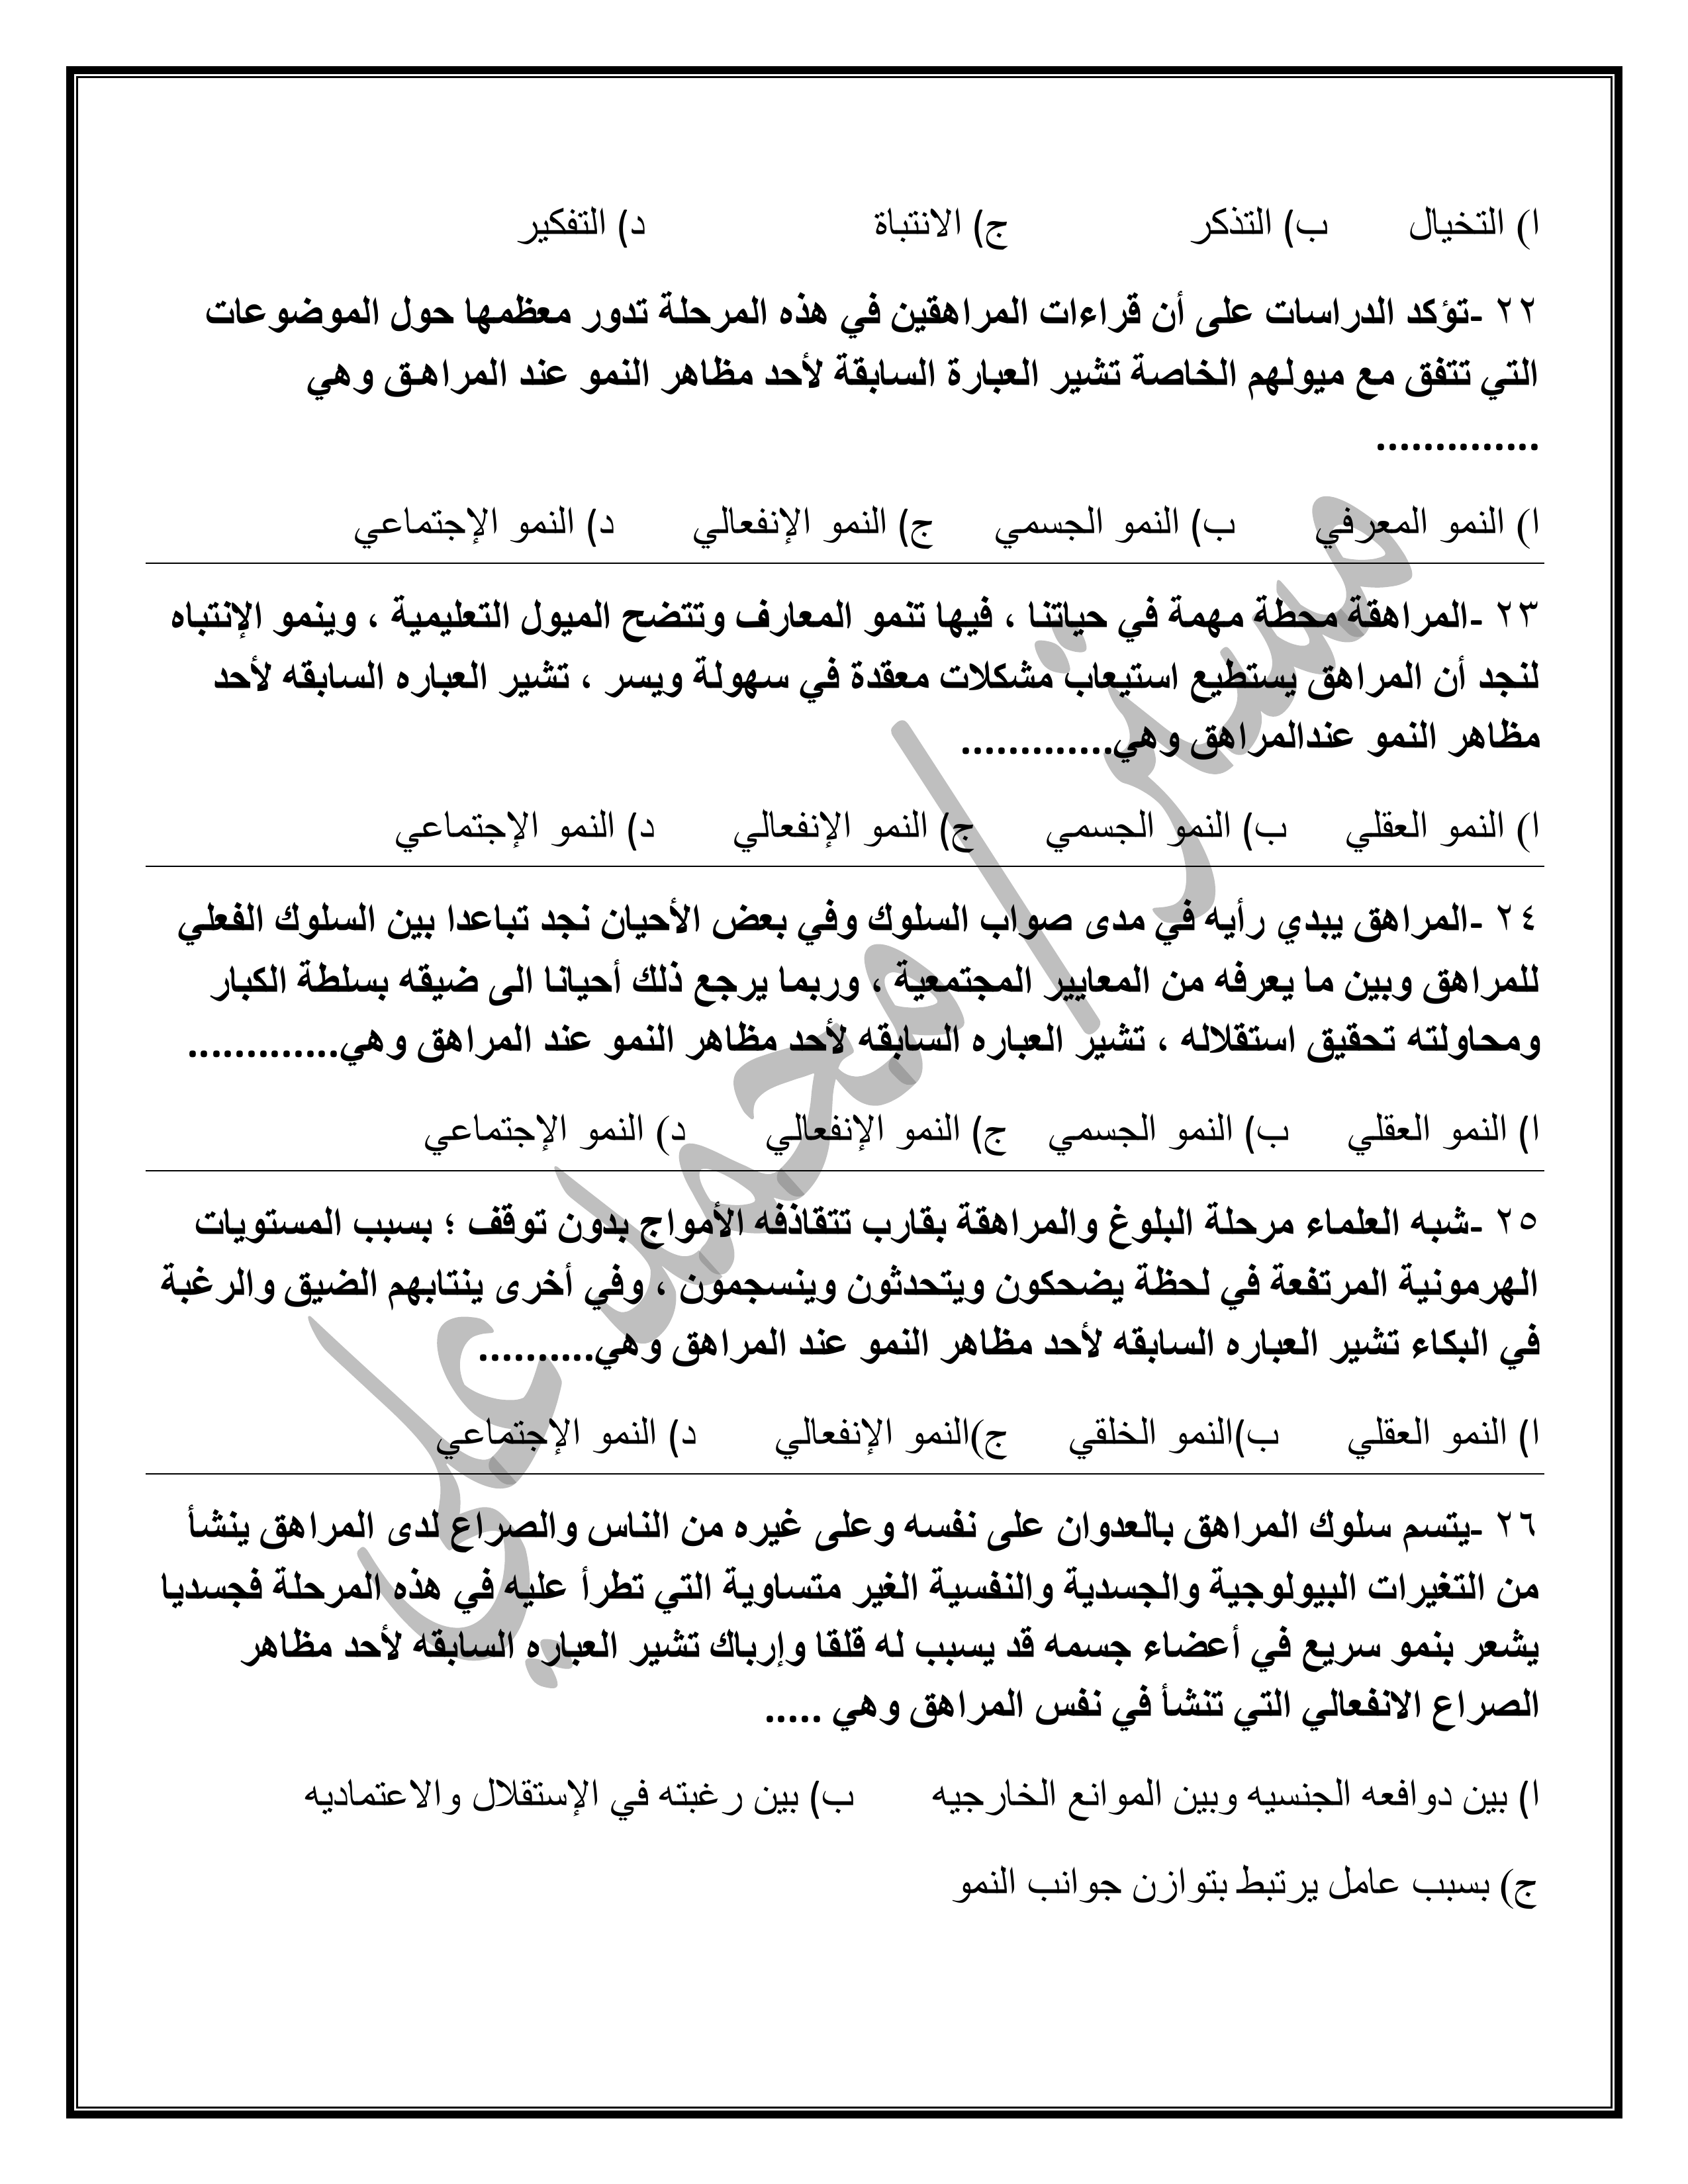 ا) التخيال ب) التذكر ج) الانتباة د) التفكير
٢٢ -تؤكد الدراسات على أن قراءات المراهقين في هذه المرحلة تدور معظمها حول الموضوعات
التي تتفق مع ميولهم الخاصة تشير العبارة السابقة لأحد مظاهر النمو عند المراهـق وهي
..............
ا) النمو المعرفي ب) النمو الجسمي ج) النمو الإنفعالي د) النمو الإجتماعي
٢٣ -المراهقة محطة مهمة في حياتنا ، فيها تنمو المعارف وتتضح الميول التعليمية ، وينمو الإنتباه
لنجد أن المراهق يستطيع استيعاب مشكلات معقدة في سهولة ويسر ، تشير العباره السابقه لأحد
مظاهر النمو عندالمراهق وهي.............
ا) النمو العقلي ب) النمو الجسمي ج) النمو الإنفعالي د) النمو الإجتماعي
٢٤ -المراهق يبدي رأيه في مدى صواب السلوك وفي بعض الأحيان نجد تباعدا بين السلوك الفعلي
للمراهق وبين ما يعرفه من المعايير المجتمعية ، وربما يرجع ذلك أحيانا الى ضيقه بسلطة الكبار
ومحاولته تحقيق استقلاله ، تشير العباره السابقه لأحد مظاهر النمو عند المراهق وهي.............
ا) النمو العقلي ب) النمو الجسمي ج) النمو الإنفعالي د) النمو الإجتماعي
٢٥ -شبه العلماء مرحلة البلوغ والمراهقة بقارب تتقاذفه الأمواج بدون توقف ؛ بسبب المستويات
الهرمونية المرتفعة في لحظة يضحكون ويتحدثون وينسجمون ، وفي أخرى ينتابهم الضيق والرغبة
في البكاء تشير العباره السابقه لأحد مظاهر النمو عند المراهق وهي..........
ا) النمو العقلي ب)النمو الخلقي ج)النمو الإنفعالي د) النمو الإجتماعي
٢٦ -يتسم سلوك المراهق بالعدوان على نفسه وعلى غيره من الناس والصراع لدى المراهق ينشأ
من التغيرات البيولوجية والجسدية والنفسية الغير متساوية التي تطرأ عليه في هذه المرحلة فجسديا
يشعر بنمو سريع في أعضاء جسمه قد يسبب له قلقا وإرباك تشير العباره السابقه لأحد مظاهر
الصراع الانفعالي التي تنشأ في نفس المراهق وهي .....
ا) بين دوافعه الجنسيه وبين الموانع الخارجيه ب) بين رغبته في الإستقلال والاعتماديه
ج) بسبب عامل يرتبط بتوازن جوانب النمو
مستر/ محمد علي